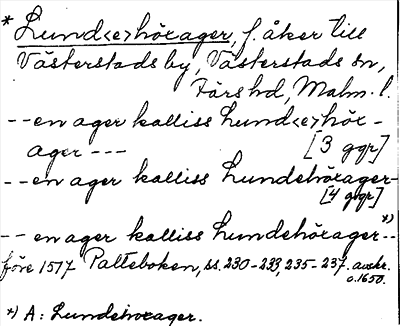 * Lund<e>hörager, f. åker till
Västerstads by, Västerstads sn,
Färs hd, Malm. l.
-- en ager kalliss Lund<e>hör-
ager --- [3 ggr]
-- en ager kalliss Lundehörager--
[4 ggr]
-- en ager kalliss Lundehörager--*)
före 1577 Palteboken, ss. 230-233, 235-237. avskr.
o. 1650.
*) A: Lundehorager.